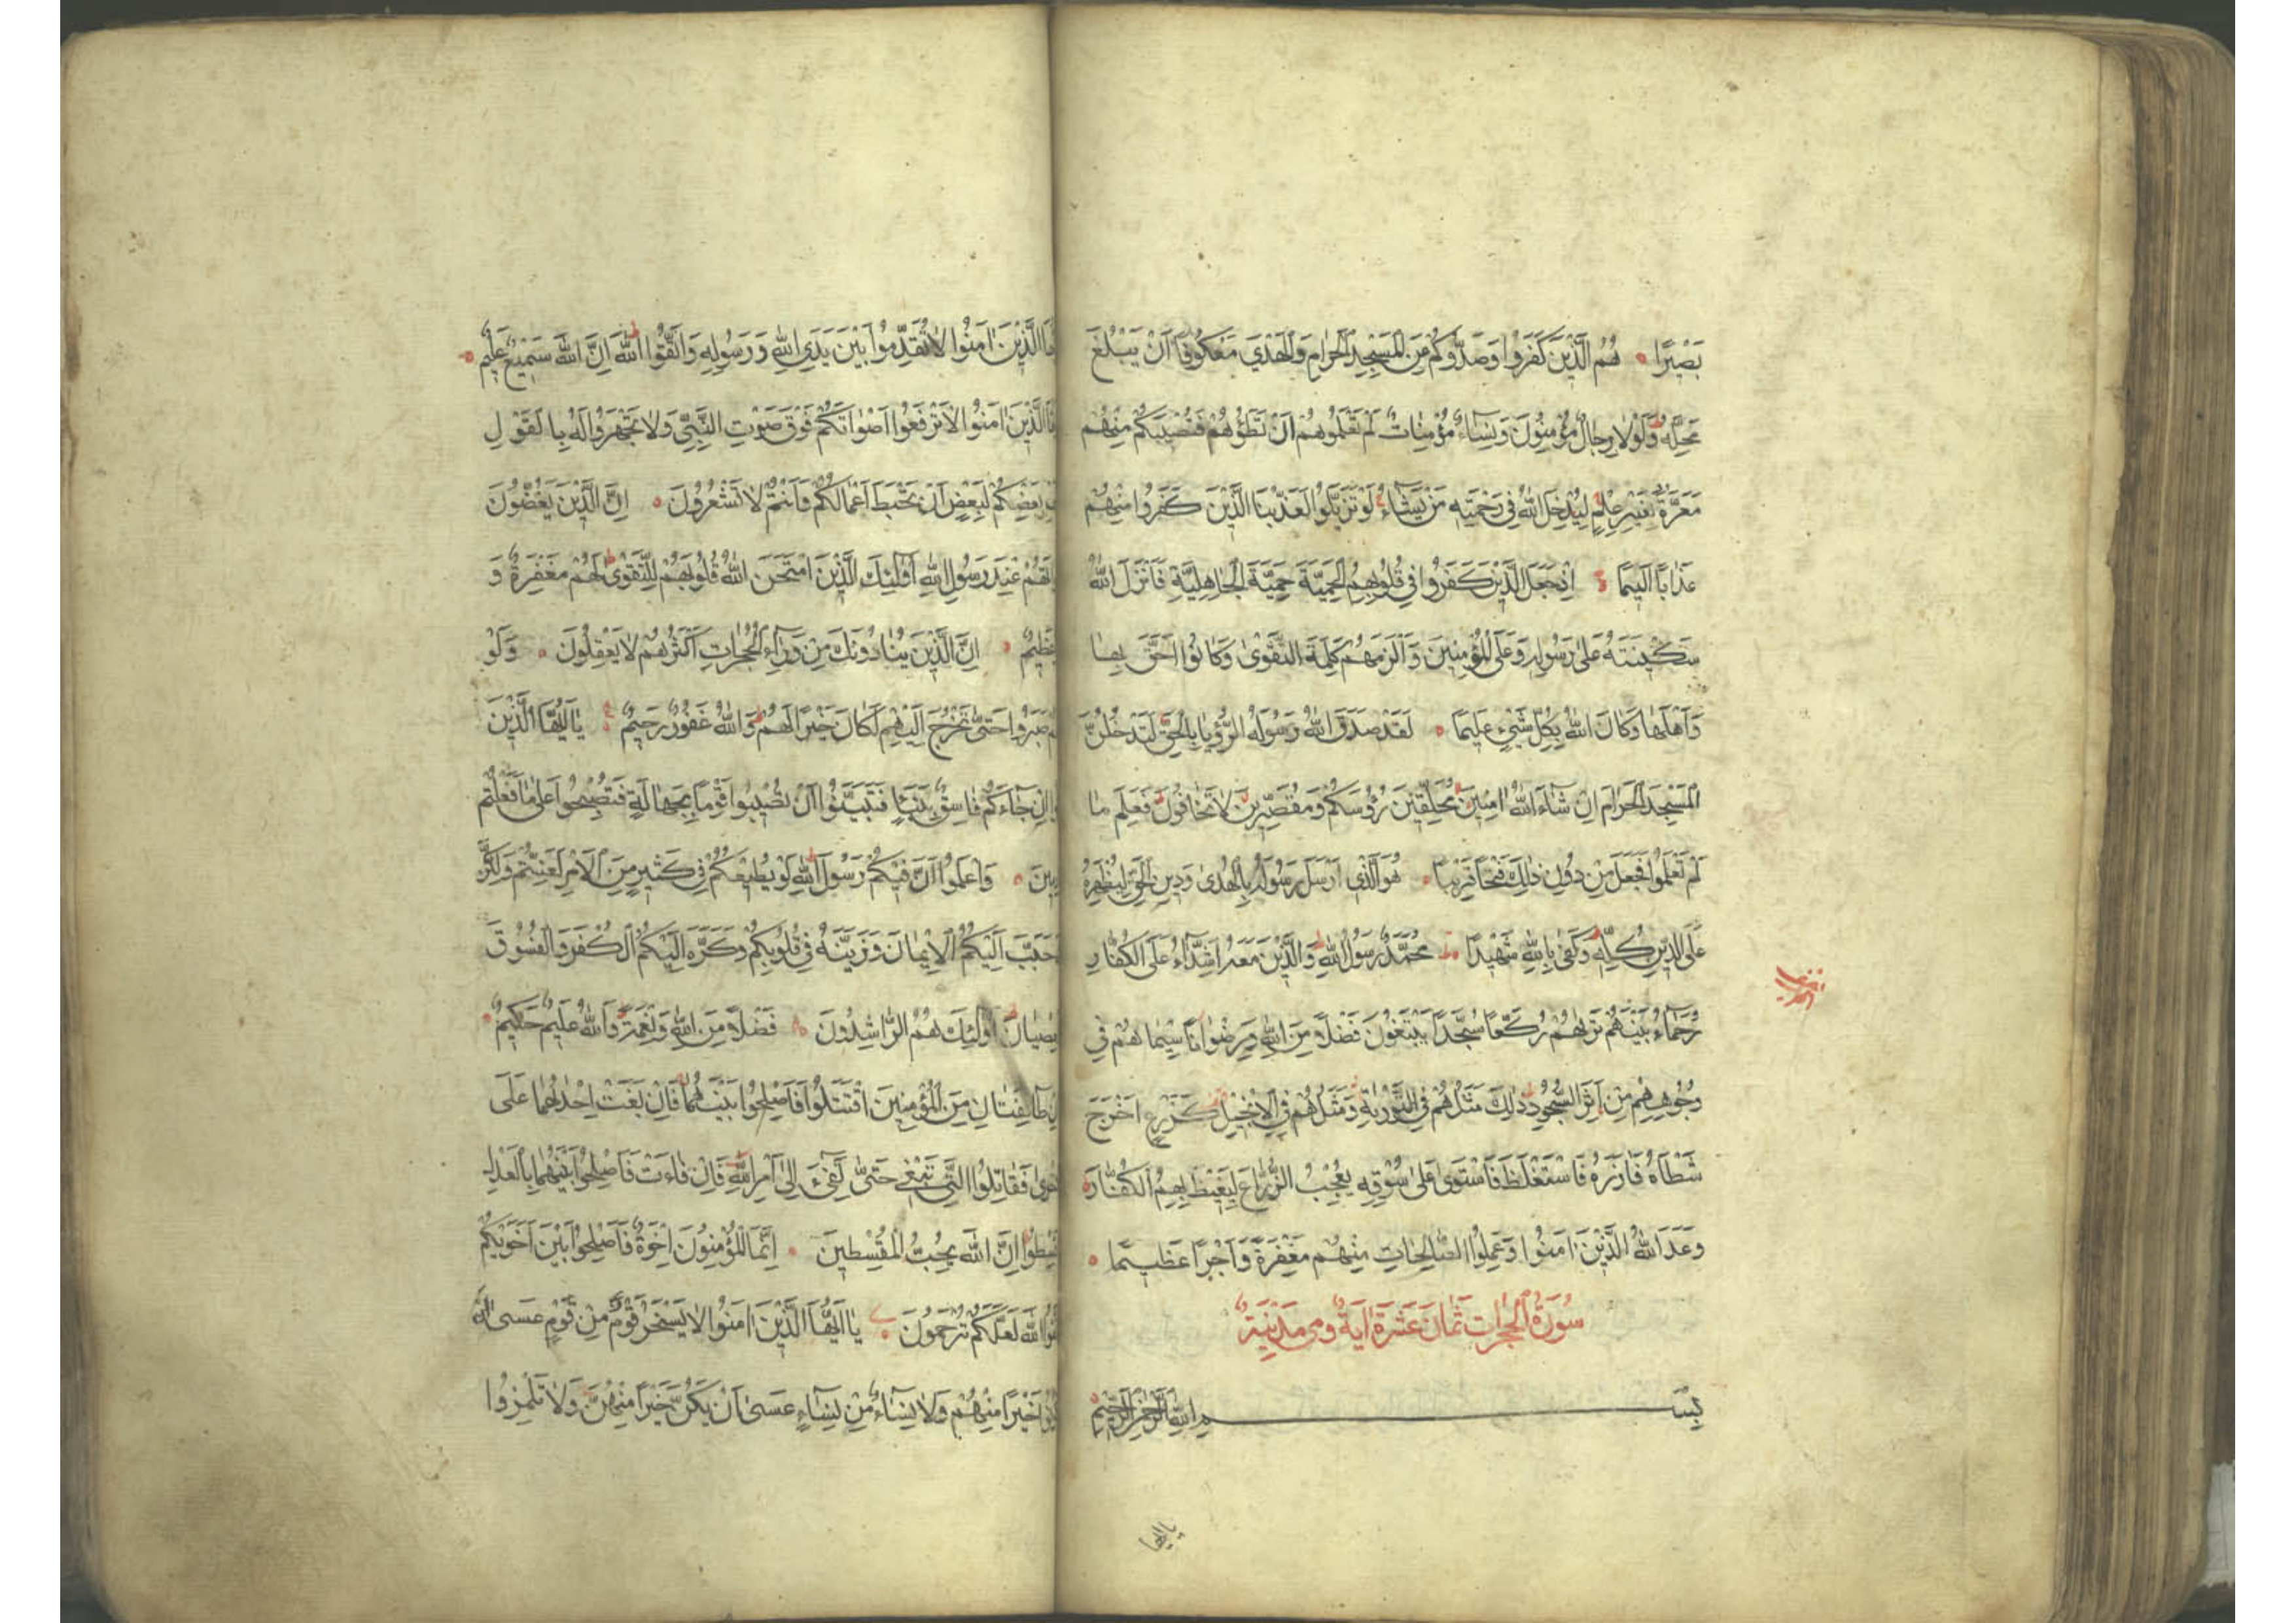 بَصٖيرًا هُمُ الَّذٖينَ كَفَرُوا وَصَدُّوكُمْ عَنِ الْمَسْجِدِ الْحَرَامِ وَالْهَدْيَ مَعْكُوفًا اَنْ يَبْلُغَ
مَحِلَّهُ وَلَوْلَا رِجَالٌ مُؤْمِنُونَ وَنِسَاءٌ مُؤْمِنَاتٌ لَمْ تَعْلَمُوهُمْ اَنْ تَطَؤُهُمْ فَتُصٖيبَكُمْ مِنْهُمْ
مَعَرَّةٌ بِغَيْرِ عِلْمٍ لِيُدْخِلَ اللّٰهُ فٖى رَحْمَتِهٖ مَنْ يَشَاءُ لَوْ تَزَيَّلُوا لَعَذَّبْنَا الَّذٖينَ كَفَرُوا مِنْهُمْ
عَذَابًا اَلٖيمًا اِذْ جَعَلَ الَّذٖينَ كَفَرُوا فٖى قُلُوبِهِمُ الْحَمِيَّةَ حَمِيَّةَ الْجَاهِلِيَّةِ فَاَنْزَلَ اللّٰهُ
سَكٖينَتَهُ عَلٰى رَسُولِهٖ وَعَلَى الْمُؤْمِنٖينَ وَاَلْزَمَهُمْ كَلِمَةَ التَّقْوٰى وَكَانُوا اَحَقَّ بِهَا
وَاَهْلَهَا وَكَانَ اللّٰهُ بِكُلِّ شَيْءٍ عَلٖيمًا لَقَدْ صَدَقَ اللّٰهُ رَسُولَهُ الرُّؤْيَا بِالْحَقِّ لَتَدْخُلُنَّ
الْمَسْجِدَ الْحَرَامَ اِنْ شَاءَ اللّٰهُ اٰمِنٖينَ مُحَلِّقٖينَ رُؤُسَكُمْ وَمُقَصِّرٖينَ لَا تَخَافُونَ فَعَلِمَ مَا
لَمْ تَعْلَمُوا فَجَعَلَ مِنْ دُونِ ذٰلِكَ فَتْحًا قَرٖيبًا هُوَ الَّذٖى اَرْسَلَ رَسُولَهُ بِالْهُدٰى وَدٖينِ الْحَقِّ لِيُظْهِرَهُ
عَلَى الدّٖينِ كُلِّهٖ وَكَفٰى بِاللّٰهِ شَهٖيدًا مُحَمَّدٌ رَسُولُ اللّٰهِ وَالَّذٖينَ مَعَهُ اَشِدَّاءُ عَلَى الْكُفَّارِ
رُحَمَاءُ بَيْنَهُمْ تَرٰيهُمْ رُكَّعًا سُجَّدًا يَبْتَغُونَ فَضْلًا مِنَ اللّٰهِ وَرِضْوَانًا سٖيمَاهُمْ فٖى
وُجُوهِهِمْ مِنْ اَثَرِ السُّجُودِ ذٰلِكَ مَثَلُهُمْ فِى التَّوْرٰيةِ وَمَثَلُهُمْ فِى الْاِنْجٖيلِ كَزَرْعٍ اَخْرَجَ
شَطْاَهُ فَاٰزَرَهُ فَاسْتَغْلَظَ فَاسْتَوٰى عَلٰى سُوقِهٖ يُعْجِبُ الزُّرَّاعَ لِيَغٖيظَ بِهِمُ الْكُفَّارَ
وَعَدَ اللّٰهُ الَّذٖينَ اٰمَنُوا وَعَمِلُوا الصَّالِحَاتِ مِنْهُمْ مَغْفِرَةً وَاَجْرًا عَظٖيمًا
سُورَةُ الْحُجُرَاتِ ثَمَانَ عَشَرَةَ اٰيَةً وَهِيَ مَدَنِيَّةٌ
بِسْمِ اللّٰهِ الرَّحْمٰنِ الرَّحٖيمِ
يا ايها
الَّذٖينَ اٰمَنُوا لَا تُقَدِّمُوا بَيْنَ يَدَىِ اللّٰهِ وَرَسُولِهٖ وَاتَّقُوا اللّٰهَ اِنَّ اللّٰهَ سَمٖيعٌ عَلٖيمٌ
الَّذٖينَ اٰمَنُوا لَا تَرْفَعُوا اَصْوَاتَكُمْ فَوْقَ صَوْتِ النَّبِيِّ وَلَا تَجْهَرُوا لَهُ بِالْقَوْلِ
بَعْضِكُمْ لِبَعْضٍ اَنْ تَحْبَطَ اَعْمَالُكُمْ وَاَنْتُمْ لَا تَشْعُرُونَ اِنَّ الَّذٖينَ يَغُضُّونَ
عِنْدَ رَسُولِ اللّٰهِ اُولٰئِكَ الَّذٖينَ امْتَحَنَ اللّٰهُ قُلُوبَهُمْ لِلتَّقْوٰى لَهُمْ مَغْفِرَةٌ وَ
عَظٖيمٌ اِنَّ الَّذٖينَ يُنَادُونَكَ مِنْ وَرَاءِ الْحُجُرَاتِ اَكْثَرُهُمْ لَا يَعْقِلُونَ وَلَوْ
صَبَرُوا حَتّٰى تَخْرُجَ اِلَيْهِمْ لَكَانَ خَيْرًا لَهُمْ وَاللّٰهُ غَفُورٌ رَحٖيمٌ يَا اَيُّهَا الَّذٖينَ
اِنْ جَاءَكُمْ فَاسِقٌ بِنَبَاٍ فَتَبَيَّنُوا اَنْ تُصٖيبُوا قَوْمًا بِجَهَالَةٍ فَتُصْبِحُوا عَلٰى مَا فَعَلْتُمْ
وَاعْلَمُوا اَنَّ فٖيكُمْ رَسُولَ اللّٰهِ لَوْ يُطٖيعُكُمْ فٖى كَثٖيرٍ مِنَ الْاَمْرِ لَعَنِتُّمْ وَلٰكِنَّ
حَبَّبَ اِلَيْكُمُ الْاٖيمَانَ وَزَيَّنَهُ فٖى قُلُوبِكُمْ وَكَرَّهَ اِلَيْكُمُ الْكُفْرَ وَالْفُسُوقَ
اُولٰئِكَ هُمُ الرَّاشِدُونَ فَضْلًا مِنَ اللّٰهِ وَنِعْمَةً وَاللّٰهُ عَلٖيمٌ حَكٖيمٌ
طَائِفَتَانِ مِنَ الْمُؤْمِنٖينَ اقْتَتَلُوا فَاَصْلِحُوا بَيْنَهُمَا فَاِنْ بَغَتْ اِحْدٰيهُمَا عَلَى
فَقَاتِلُوا الَّتٖى تَبْغٖى حَتّٰى تَفٖيءَ اِلٰى اَمْرِ اللّٰهِ فَاِنْ فَاءَتْ فَاَصْلِحُوا بَيْنَهُمَا بِالْعَدْلِ
اِنَّ اللّٰهَ يُحِبُّ الْمُقْسِطٖينَ اِنَّمَا الْمُؤْمِنُونَ اِخْوَةٌ فَاَصْلِحُوا بَيْنَ اَخَوَيْكُمْ
اللّٰهَ لَعَلَّكُمْ تُرْحَمُونَ يَا اَيُّهَا الَّذٖينَ اٰمَنُوا لَا يَسْخَرْ قَوْمٌ مِنْ قَوْمٍ عَسٰى اَنْ
خَيْرًا مِنْهُمْ وَلَا نِسَاءٌ مِنْ نِسَاءٍ عَسٰى اَنْ يَكُنَّ خَيْرًا مِنْهُنَّ وَلَا تَلْمِزُوا